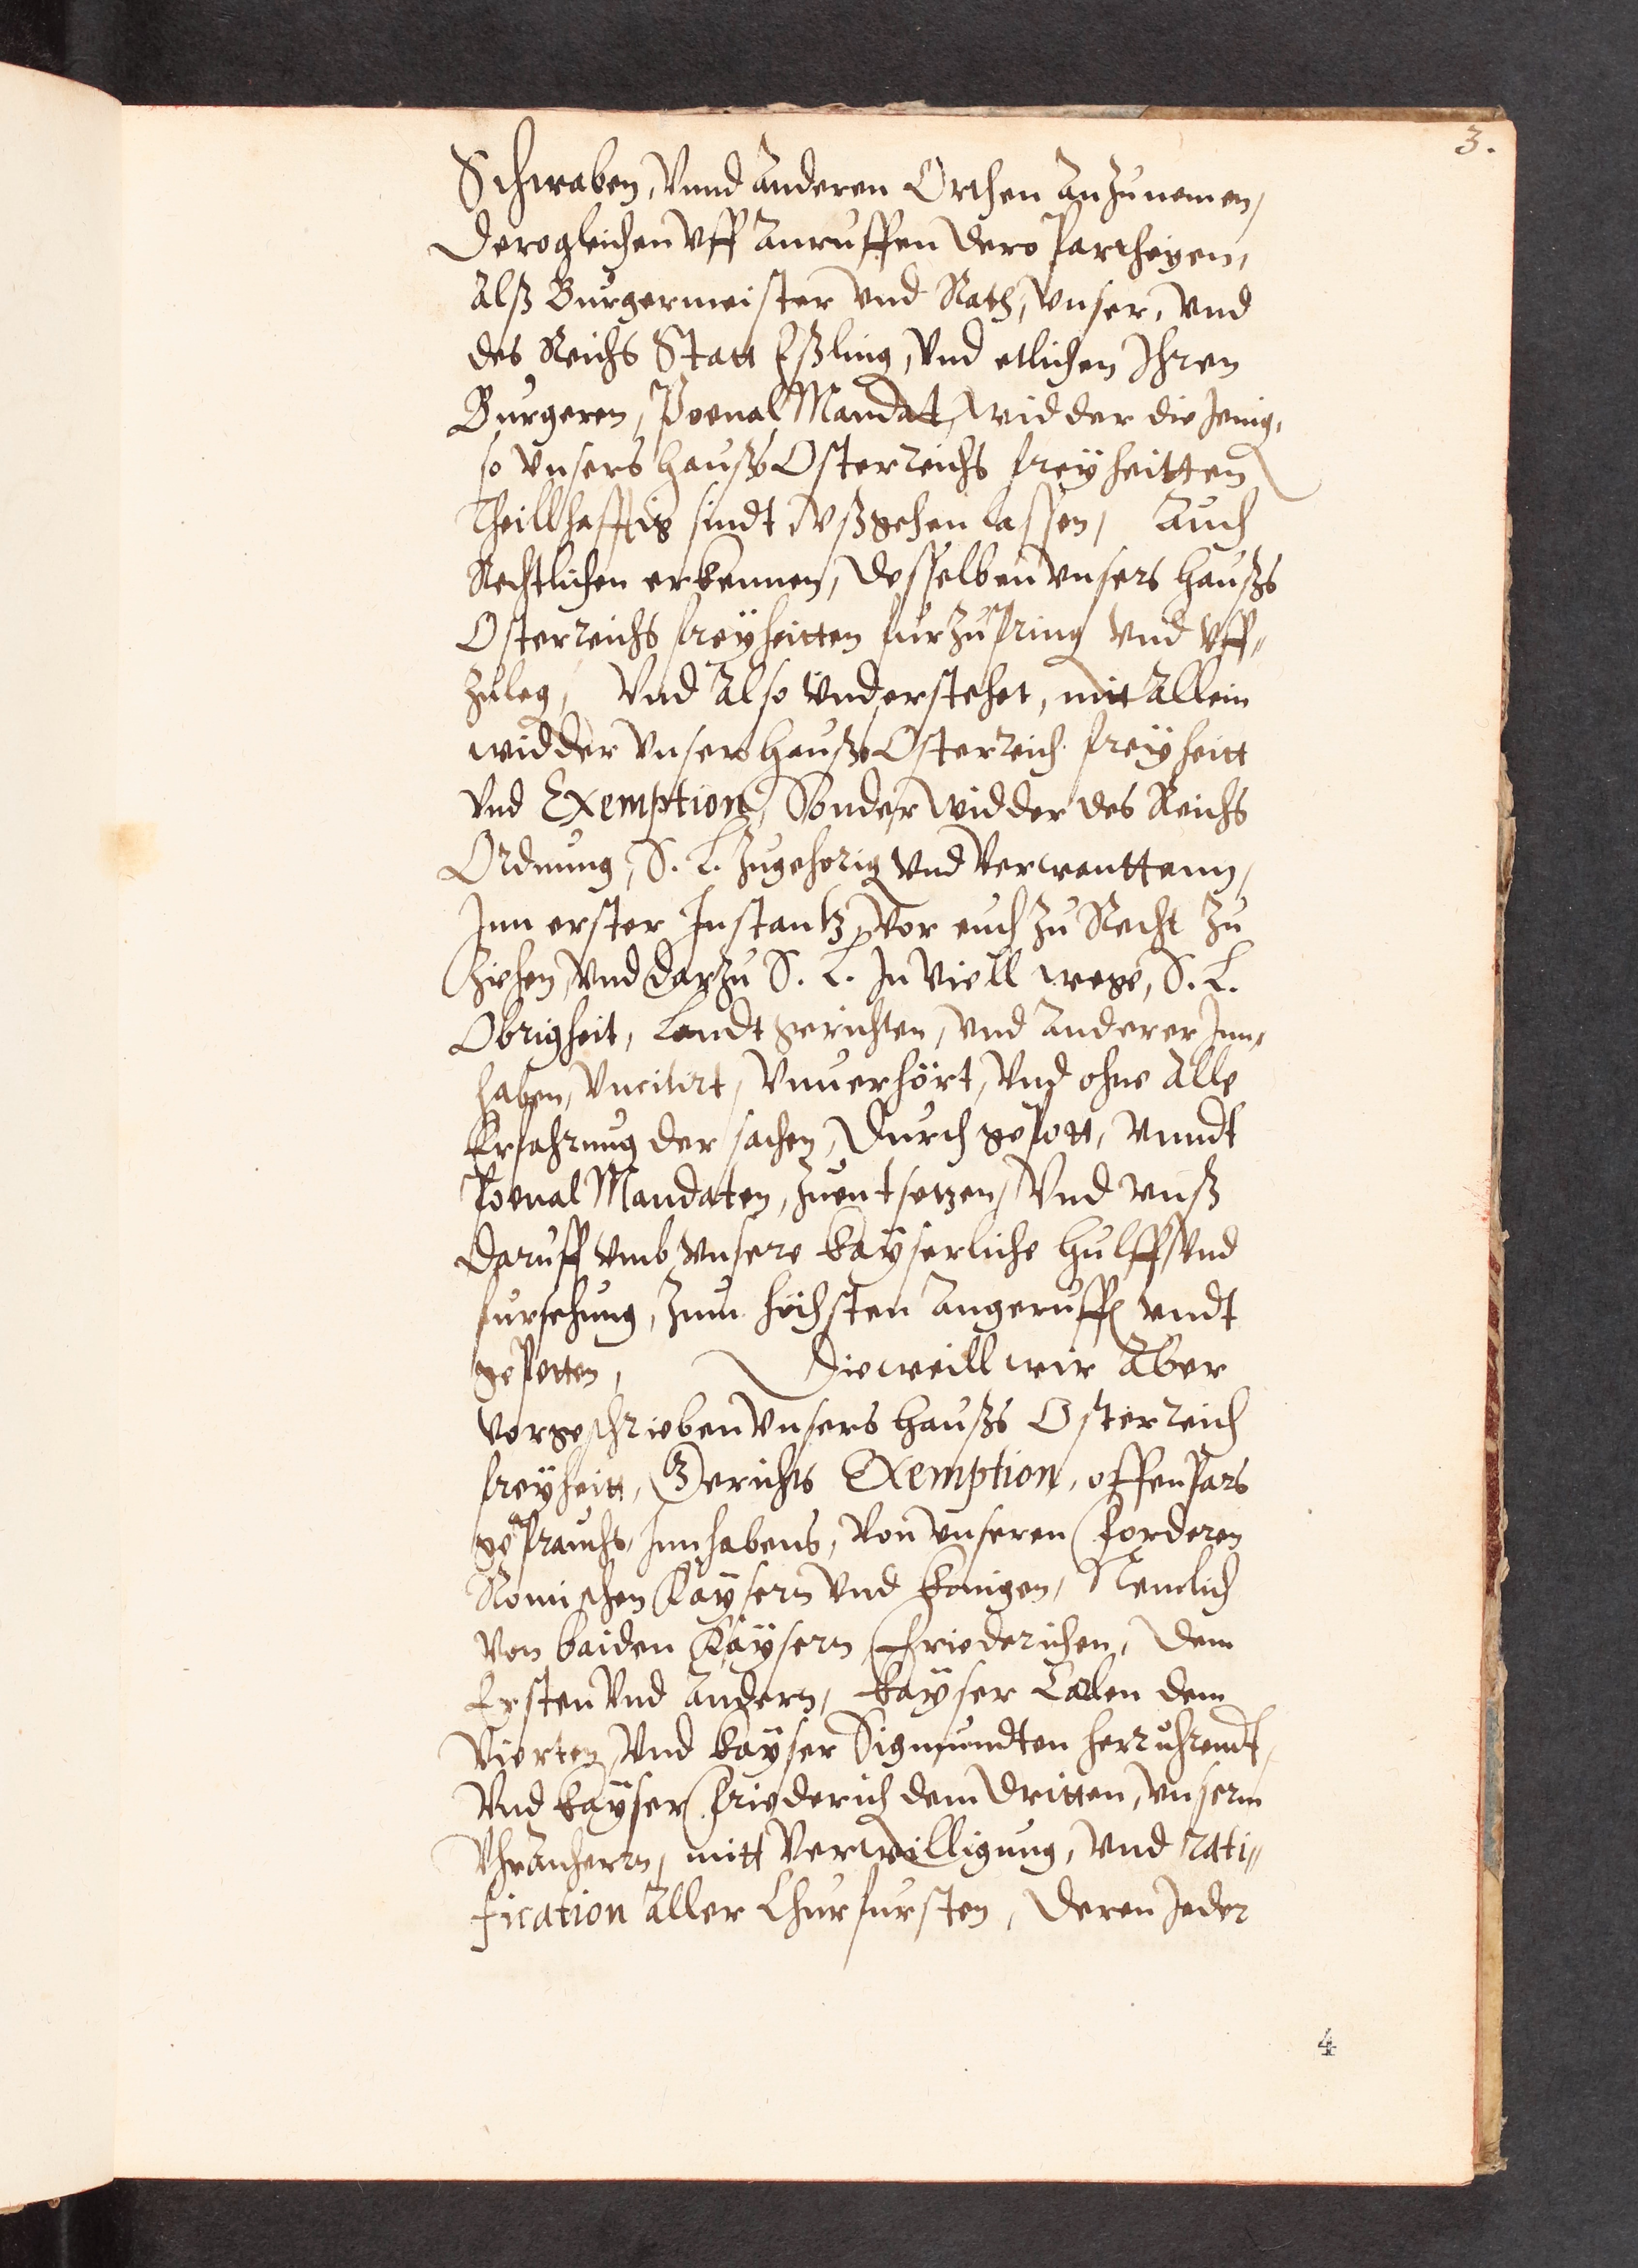 3.
Schwaben, Vnnd anderen Orthen anzunemen,
Derogleichen vff anruffen dero Partheyen,
Alß Burgermeister vnd Rath, vnser, vnd
des Reichs Statt Eßling, vnd etlichen Ihren
Burgeren, Poenal Mandat, widder die Jenig,
so vnsers hauß Osterreichs freyheitten
Theillhafftig sindt vßgehen lassen, Auch
Rechtlichen erkennen, desselben vnsers haußs
Osterreichs freyheitten furzupring vnd vff„
zuleg, Vnd also vnderstehet, nit allein
widder vnsers hauß Osterreich freyheitt
vnd Exemption, Sonder widder des Reichs
Ordnung, S. L. zugehorig vnd verwantten,
Inn erster Instantz, vor euch zu Recht zu
ziehen, vnd darzu S. L. In viell wege, S. L.
Obrigheit, Landtgerichten, vnd anderer Inn„
haben, vncitirt, vnuerhört, vnd ohne alle
Erfahrung der sachen, Durch gepott, vnndt
Poenal Mandaten, zuentsetzen, Vnd vnß
daruff vmb vnsere kayserliche hulff vnd
fursehung, zum höchsten angeruffen vndt
gepetten, Dieweill wir aber
vorgeschrieben vnsers haußs Osterreich
freyheitt, Gerichts Exemption, offenpars
geprauchs Innhabens, von vnseren forderen
Romischen Kaysern vnd konigen, Nemlich
von baiden Kaysern Friederichen, dem
Ersten vnd andern, kayser Carlen dem
Vierten, vnd kayser Sigmundten herruhrendt,
Vnd kayser friederich dem dritten, vnserm
Vhranherrn, mitt verwilligung, vnd rati„
fication aller Churfursten, deren Jeder
4